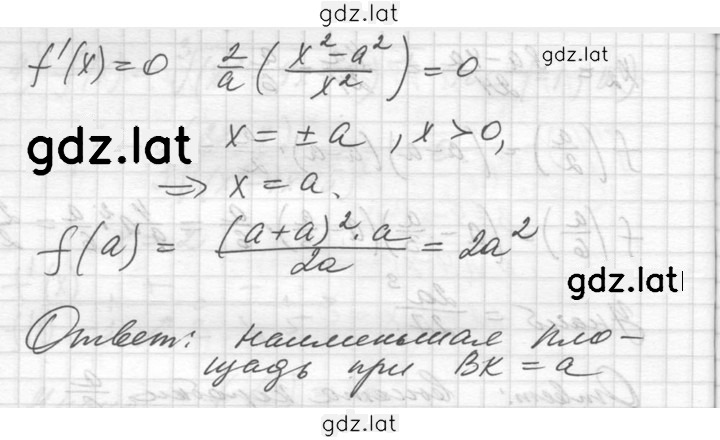 gdz.lat
f'(x) = 0 2/a ( (x² - a²)/x² ) = 0
gdz.lat
x = ± a , x > 0,
gdz.lat
=> x = a.
f(a) = ((a+a)² · a)/2a = 2a²
gdz.lat
Ответ: наименьшая пло-
щадь при BK = a
gdz.lat